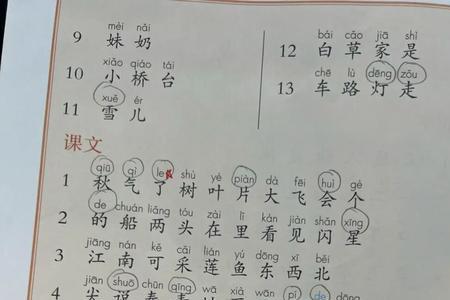 mèi nǎi
9 妹 奶
xiǎo qiáo tái
10 小 桥 台
xuě ér
11 雪 儿
bái cǎo jiā shì
12 白 草 家 是
chē lù dēng zǒu
13 车 路 灯 走
课文
qiū qì le shù yè piàn dà fēi huì gè
1 秋 气 了 树 叶 片 大 飞 会 个
de chuán liǎng tóu zài lǐ kàn jiàn shǎn xīng
2 的 船 两 头 在 里 看 见 闪 星
jiāng nán kě cǎi lián yú dōng xī běi
3 江 南 可 采 莲 鱼 东 西 北
jiān shuō chūn qīng wā wān pí de
4 尖 说 春